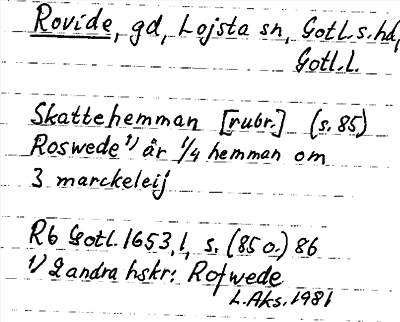 Rovide, gd, Lojsta sn, Gotl.s.hd,
Gotl.l.
Skattehemman [rubr.] (s.85)
Roswede 1) är 1/4 hemman om
3 marckeleij
Rb Gotl. 1653,1, s. (85 o.) 86
1) 2 andra hskr: Rofwede
L.Aks. 1981